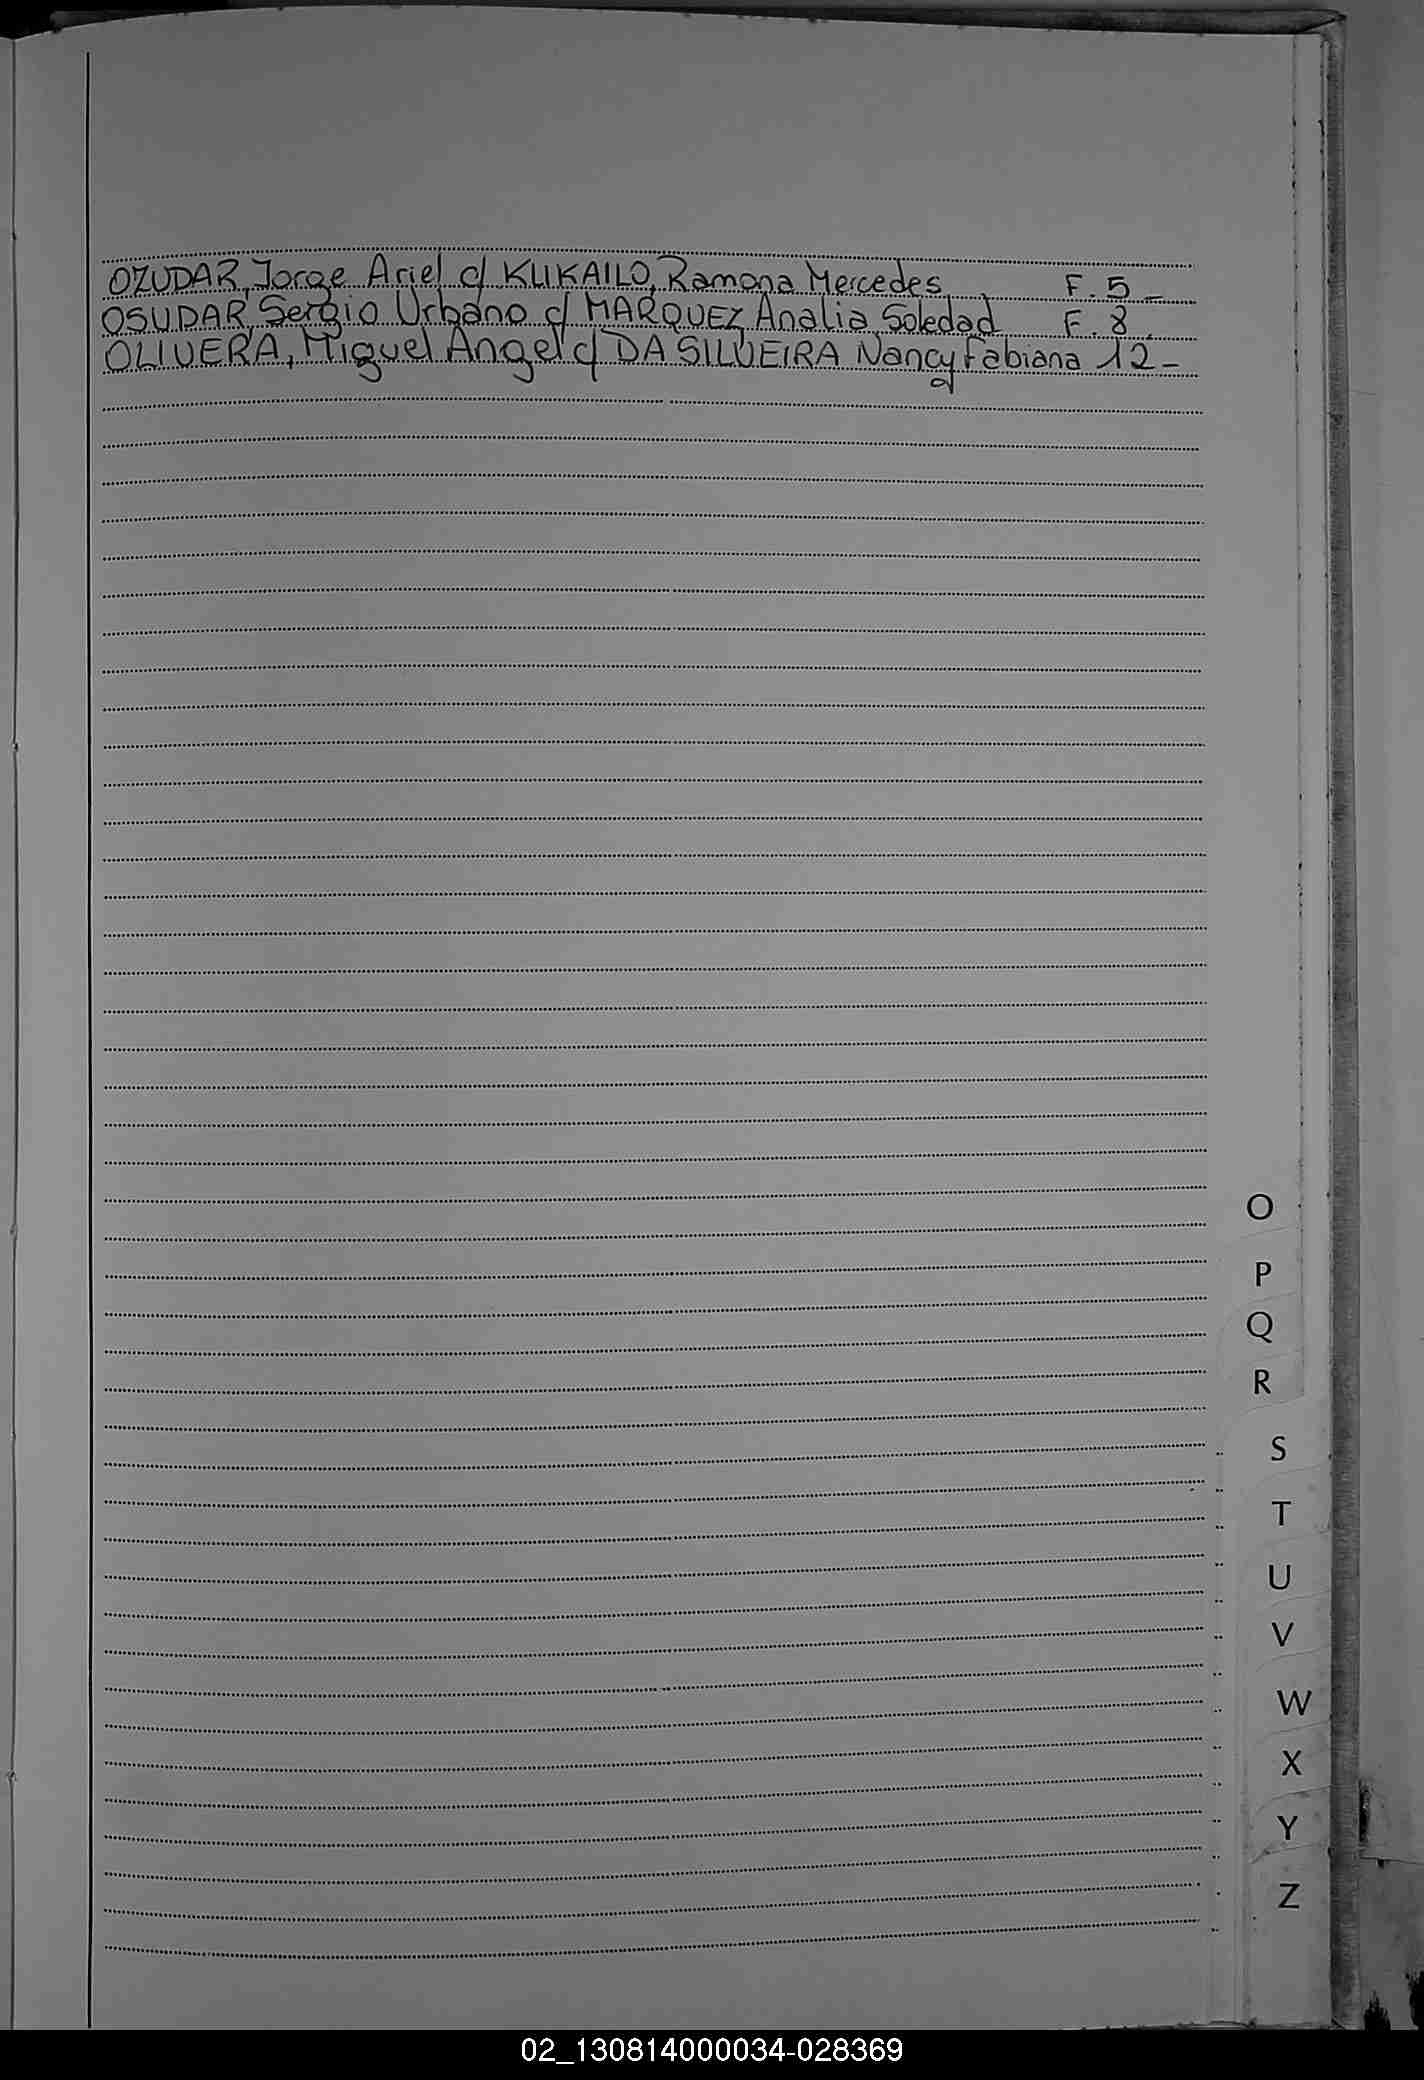 OZUDAR, Jorge Ariel c/ KLIKAILO, Ramona Mercedes F. 5 -
OSUDAR, Sergio Urbano c/ MARQUEZ Analia Soledad F. 8
OLIVERA, Miguel Angel c/ DA SILVEIRA Nancy Fabiana 12 -
O
P
Q
R
S
T
U
V
W
X
Y
Z
02_130814000034-028369